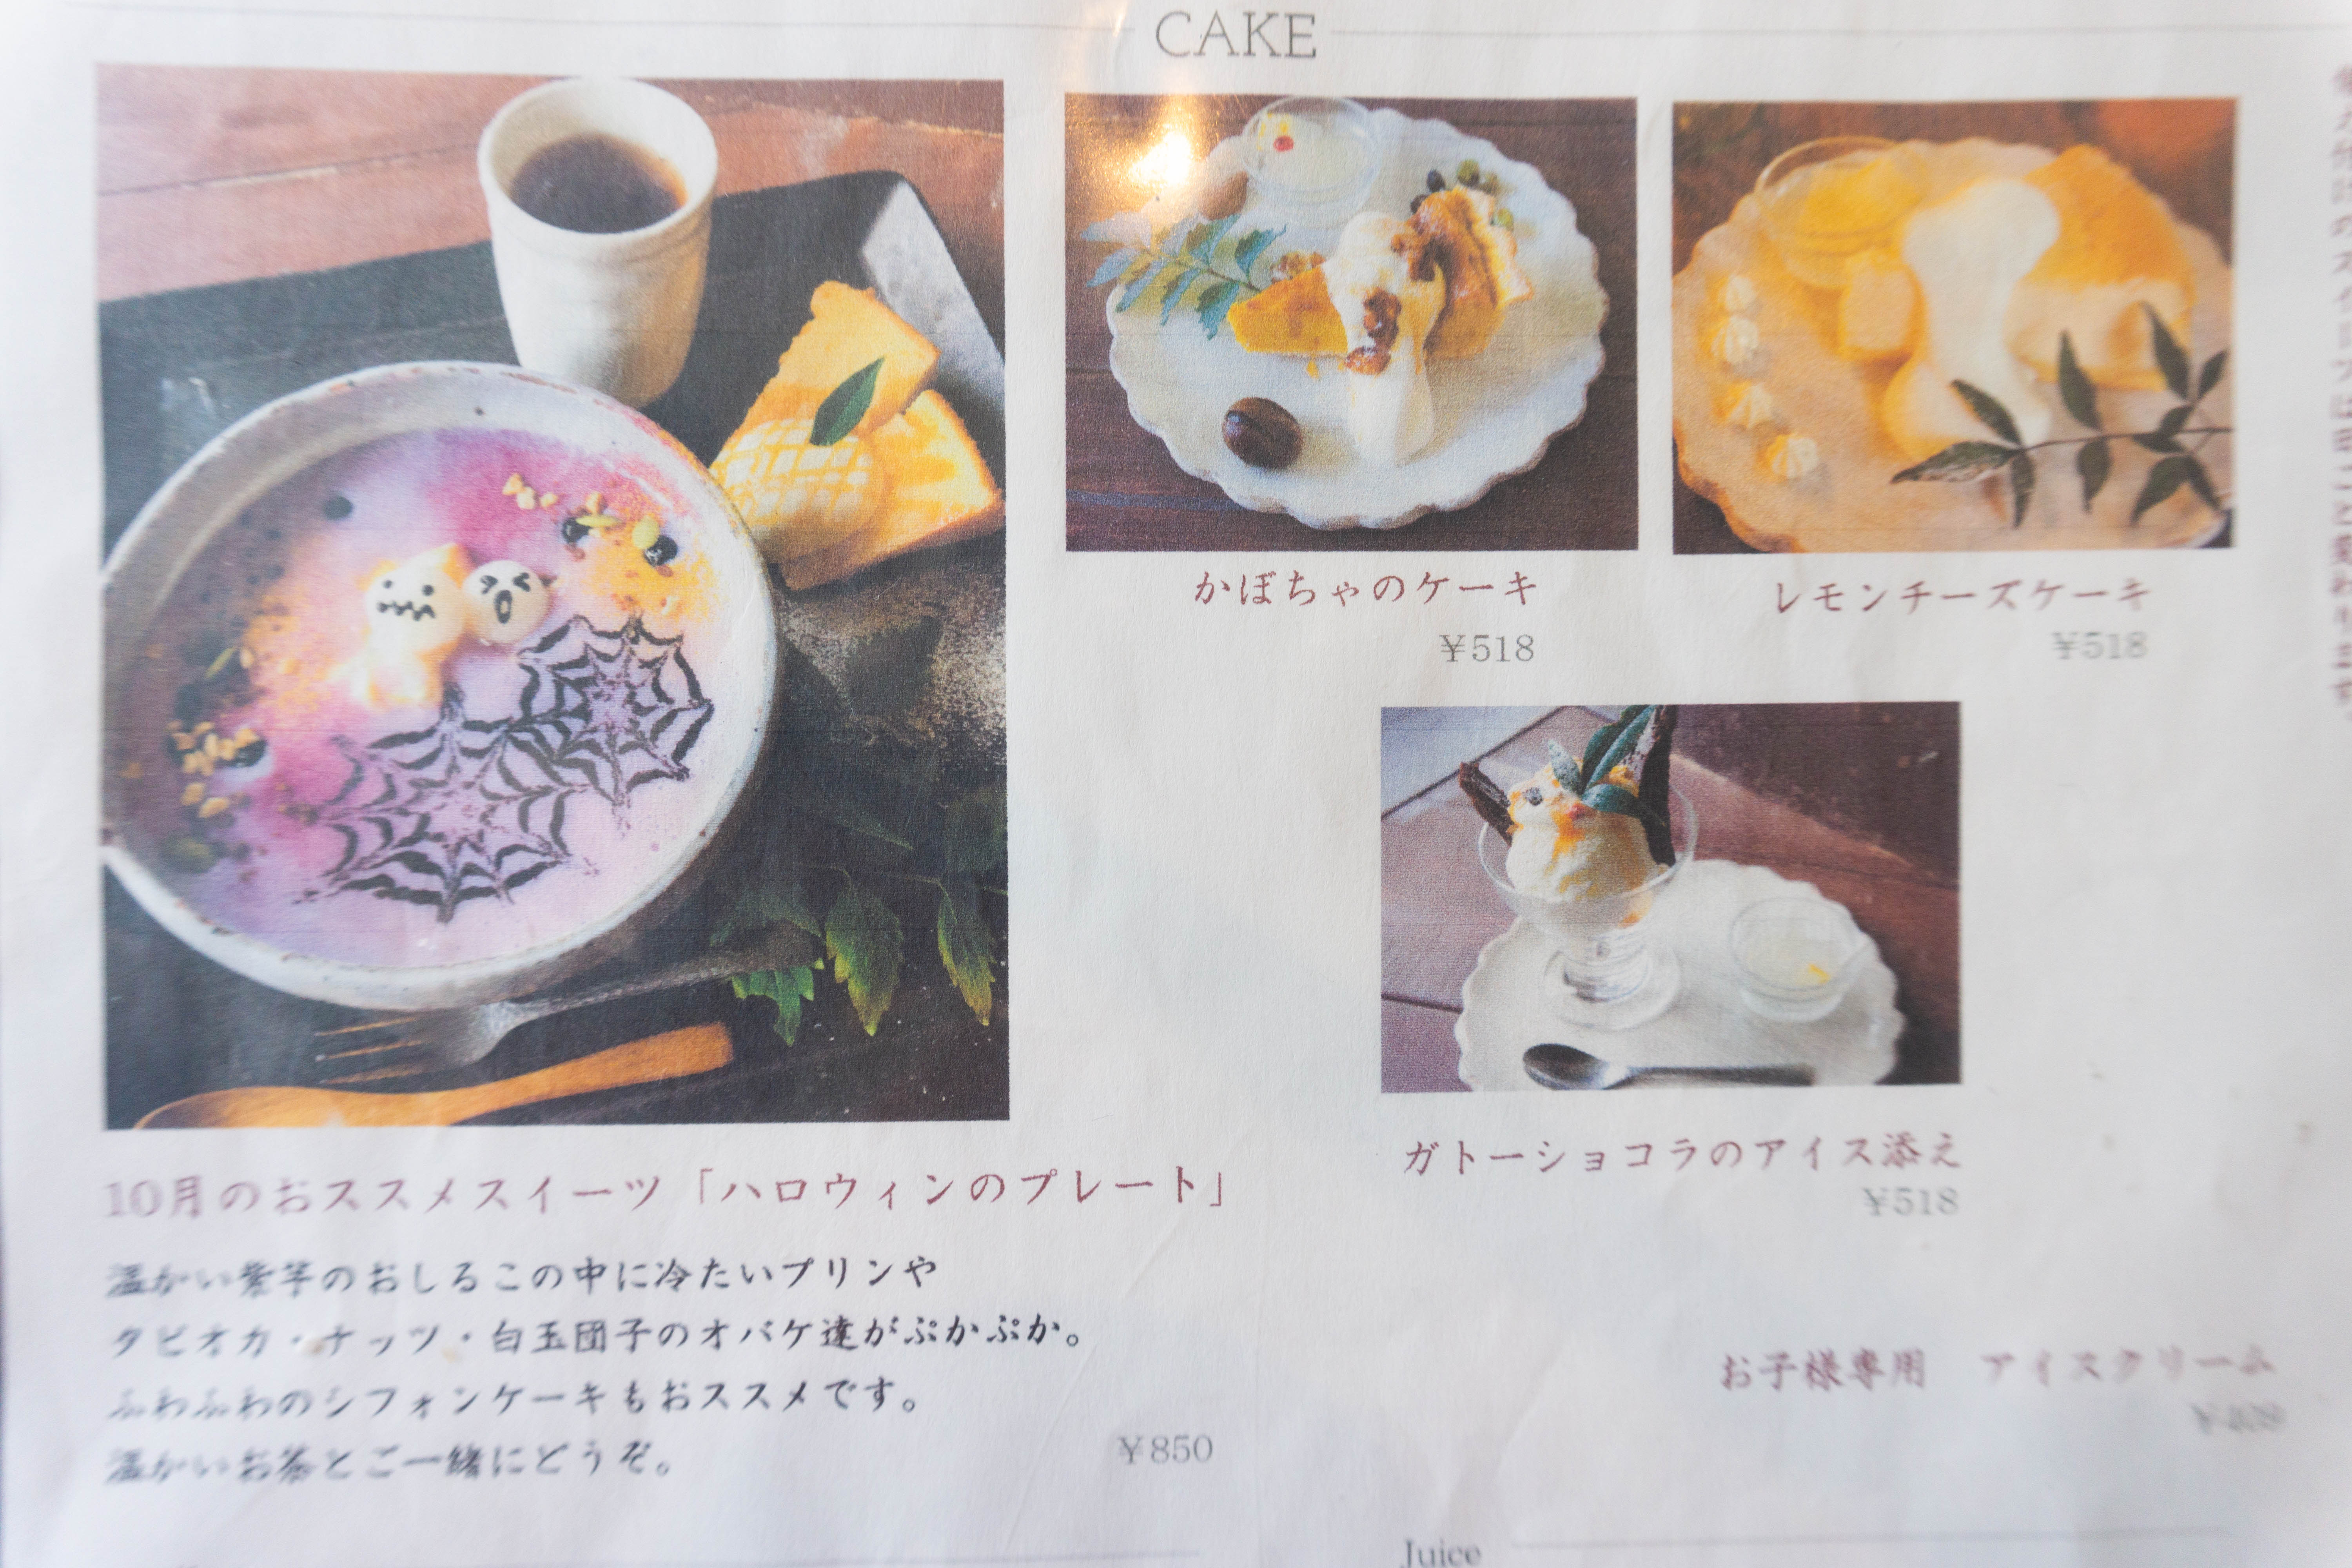 CAKE
かぼちゃのケーキ
¥518
レモンチーズケーキ
¥518
ガトーショコラのアイス添え
¥518
10月のおススメスイーツ「ハロウィンのプレート」
温かい紫芋のおしるこの中に冷たいプリンや
タピオカ・ナッツ・白玉団子のオバケ達がぷかぷか。
ふわふわのシフォンケーキもおススメです。
温かいお茶とご一緒にどうぞ。
¥850
お子様専用 アイスクリーム
Juice